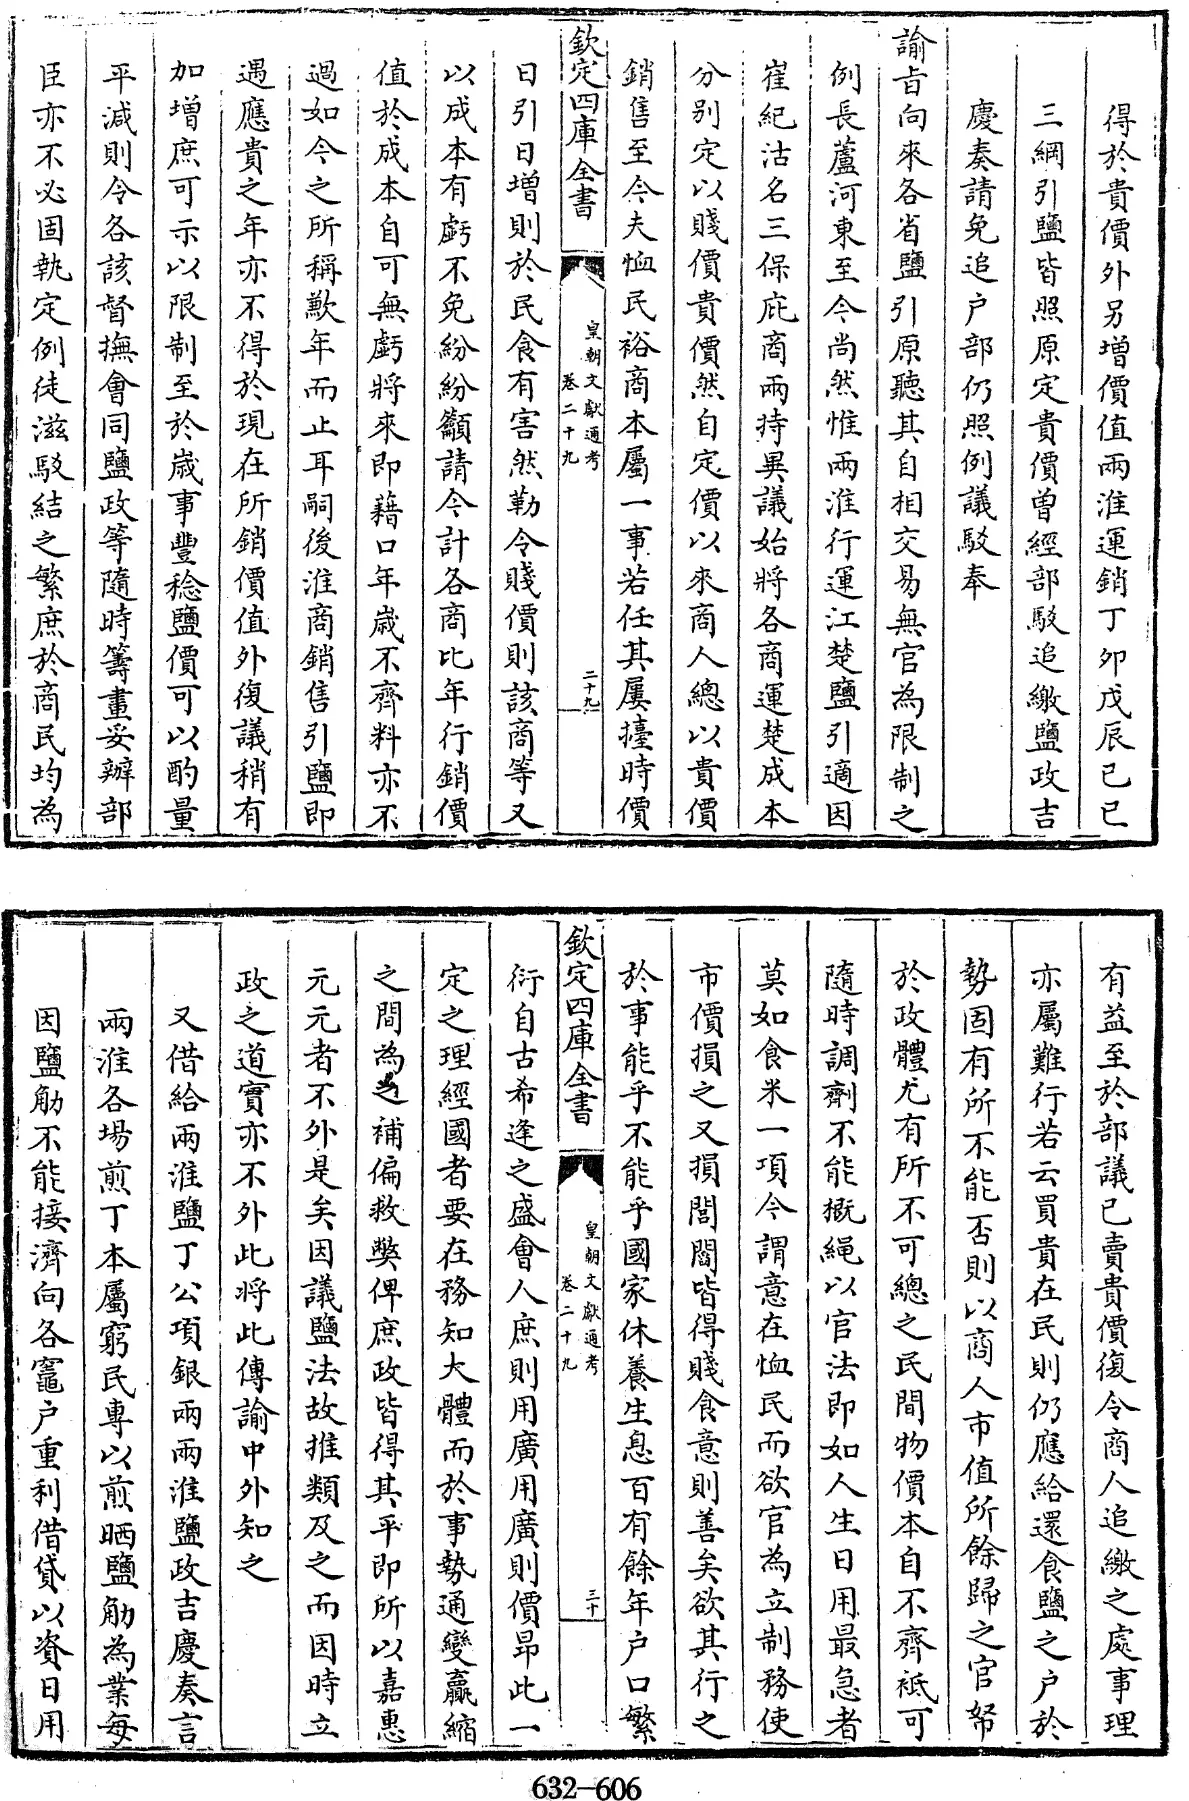 得於貴價外另增價值兩淮運銷丁卯戊辰己巳
三綱引鹽皆照原定貴價曾經部駁追繳鹽政吉
慶奏請免追户部仍照例議駁奉
諭㫖向來各省鹽引原聽其自相交易無官為限制之
例長蘆河東至今尚然惟兩淮行運江楚鹽引適因
崔紀沽名三保庇商兩持異議始將各商運楚成本
分别定以賤價貴價然自定價以來商人總以貴價
銷售至今夫恤民裕商本屬一事若任其屢擡時價
欽定四庫全書
皇朝文獻通考
卷二十九
二十九
日引日增則於民食有害然勒令賤價則該商等又
以成本有虧不免紛紛籲請今計各商比年行銷價
值於成本自可無虧將來即藉口年嵗不齊料亦不
過如今之所稱歉年而止耳嗣後淮商銷售引鹽即
遇應貴之年亦不得於現在所銷價值外復議稍有
加增庶可示以限制至於嵗事豐稔鹽價可以酌量
平減則令各該督撫會同鹽政等隨時籌畫妥辦部
臣亦不必固執定例徒滋駁結之繁庶於商民均為
有益至於部議已賣貴價復令商人追繳之處事理
亦屬難行若云買貴在民則仍應給還食鹽之户於
勢固有所不能否則以商人市值所餘歸之官帑
於政體尤有所不可總之民間物價本自不齊祗可
隨時調劑不能概繩以官法即如人生日用最急者
莫如食米一項今謂意在恤民而欲官為立制務使
市價損之又損閭閻皆得賤食意則善矣欲其行之
於事能乎不能乎國家休養生息百有餘年户口繁
欽定四庫全書
皇朝文獻通考
卷二十九
三十
衍自古希逢之盛會人庶則用廣用廣則價昂此一
定之理經國者要在務知大體而於事勢通變贏縮
之間為之補偏救弊俾庶政皆得其平即所以嘉惠
元元者不外是矣因議鹽法故推類及之而因時立
政之道實亦不外此將此傳諭中外知之
又借給兩淮鹽丁公項銀兩兩淮鹽政吉慶奏言
兩淮各場煎丁本屬窮民專以煎晒鹽觔為業每
因鹽觔不能接濟向各竈户重利借貸以資日用
632-606